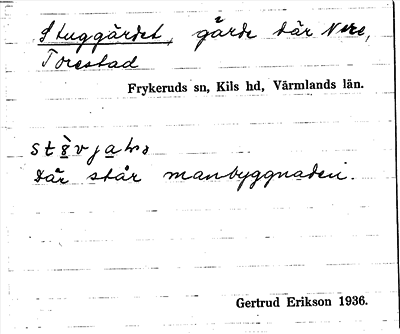 Stuggärdet, gärde där Nere,
Torestad
Frykeruds sn, Kils hd, Värmlands län.
där står manbyggnaden.
Gertrud Erikson 1936.